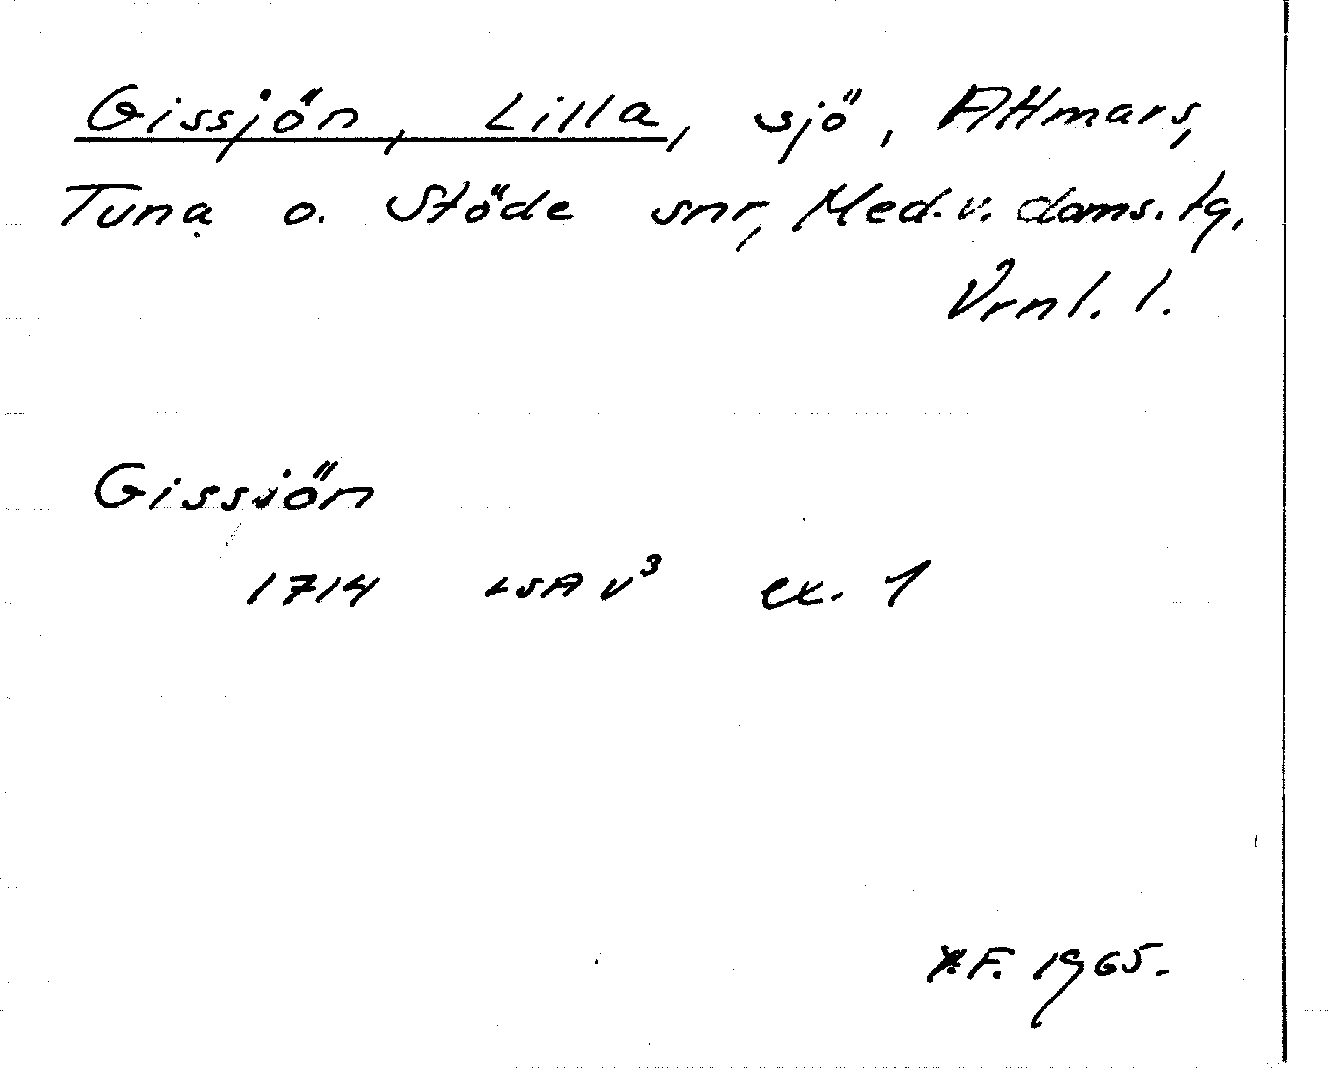 Gissjön, Lilla, sjö, Attmars,
Tuna o. Stöde snr, Med. v. doms. tg,
Vrnl. l.
Gissiön
1714 LSA V³ ex. 1
F. 1965.